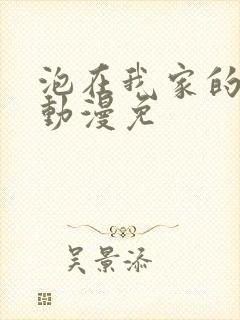 泡在我家的
動漫免
吴景添